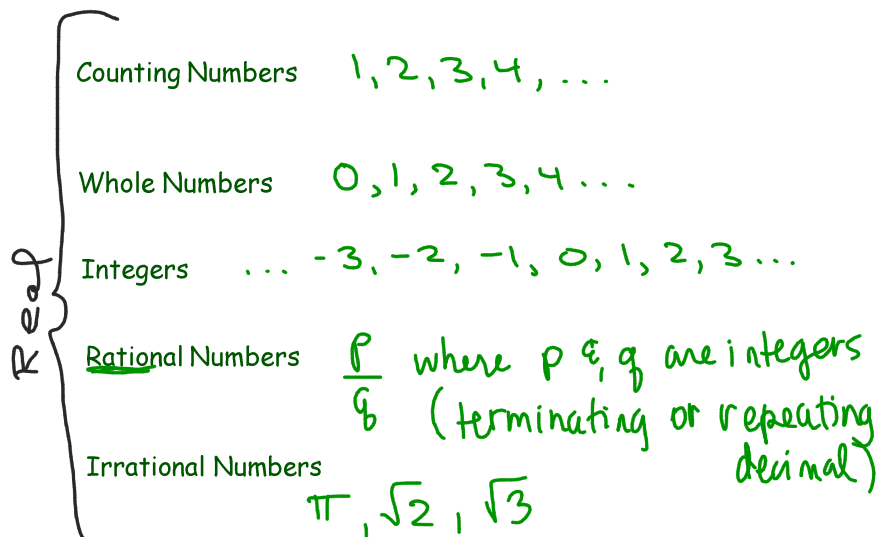 Real
Counting Numbers 1, 2, 3, 4, ...
Whole Numbers 0, 1, 2, 3, 4 ...
Integers ... -3, -2, -1, 0, 1, 2, 3 ...
Rational Numbers p/q where p & q are integers
(terminating or repeating
decimal)
Irrational Numbers
π, √2, √3